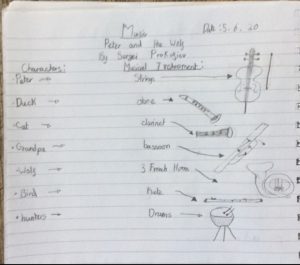 Music
Date : 5. 6. 20
Peter and the Wolf
By Sergei Prokofiev
Characters :
Musical Instrument :
· Peter →
Strings
· Duck →
oboe
· Cat →
clarinet
· Grandpa →
bassoon
· Wolf →
3 French Horns
· Bird →
flute
· hunters →
Drums